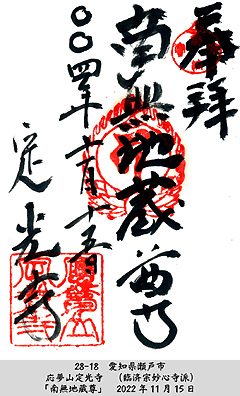 奉拝
南無地蔵尊
〇〇四年十一月十五日
定光寺
28-18 愛知県瀬戸市
応夢山定光寺 （臨済宗妙心寺派）
「南無地蔵尊」 2022年11月15日